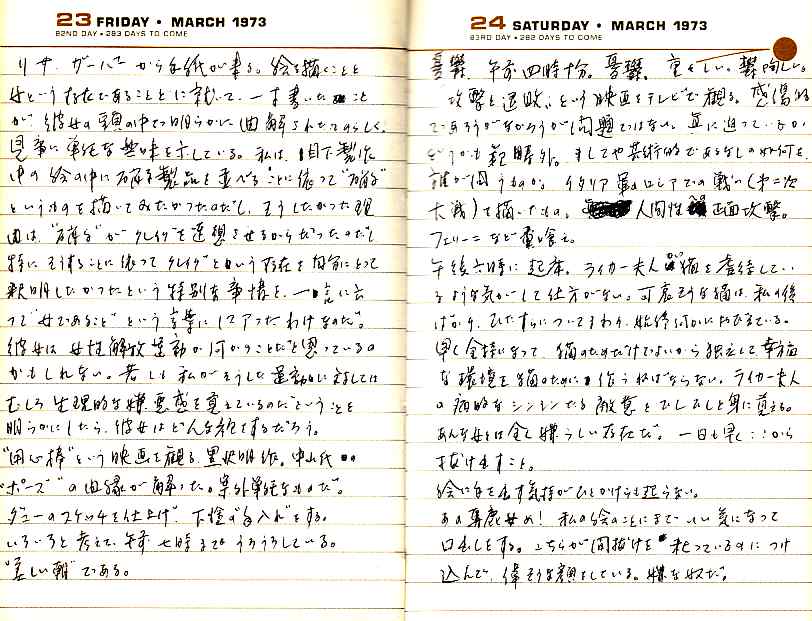 23 FRIDAY • MARCH 1973
82ND DAY • 283 DAYS TO COME
リサ・ガーバーから手紙が来る。絵を描くことと
女という存在であることとに就いて、一寸書いたこと
が彼女の頭の中で明らかに曲解されたてのらしく、
見事に単純な興味を示している。私は、目下製作
中の絵の中に石膏製品を並べることに依って
というものを描いてみたかったのだし、そうしたかった理
由は、 がクレイグを連想させるからだったのだし
特にそうすることに依ってクレイグという存在を自分にとって
釈明したかったという特別な事情を、一口に云
って“女であること”という言葉にしてしまったわけなのだ。
彼女は女性解放運動か何かのことだと思っているの
かもしれない。若しも私がそうした運動に対しては
むしろ生理的な嫌悪感を覚えているのだということを
明らかにしたら、彼女はどんな顔をするだろう。
“用心棒”という映画を観る。黒沢明作。中山氏の
“ポーズ”の由縁が解った。案外単純なものだ。
ダニーのスケッチを仕上げ、下塗の手入れをする。
いろいろと考えて、午前七時までうろうろしている。
“美しい朝”である。
24 SATURDAY • MARCH 1973
83RD DAY • 282 DAYS TO COME
憂鬱。午前四時十分。憂鬱。重々しい。鬱陶しい。
“攻撃と退敗”という映画をテレビで観る。感傷的
であろうがなかろうが問題ではない。真に迫っているか
どうかも範疇外。ましてや芸術的であるなしの如何を
誰が問うものか。イタリア軍のロシアでの戦い（第二次
大戦）を描いたもの。人間性への正面攻撃。
フェリーニなど糞喰え。
午後六時に起床。ライカー夫人が猫を虐待してい
るような気がして仕方がない。可哀そうな猫は、私の後
ばかり、ひたすらについてまわり、始終何かにおびえている。
早く金持になって、猫のためだけでよいから独立して幸福
な環境を猫のために作らねばならない。ライカー夫人
の病的なシンシンたる敵意をひしひしと身に覚える。
あんな女は全く嫌らしい存在だ。一日も早くここから
抜け出すこと。
絵に手を出す気持がひとかけらも起らない。
あの馬鹿女め！私の絵のことにまでいい気になって
口出しをする。こちらが間抜けを装っているのにつけ
込んで、偉そうな顔をしている。嫌な奴だ。